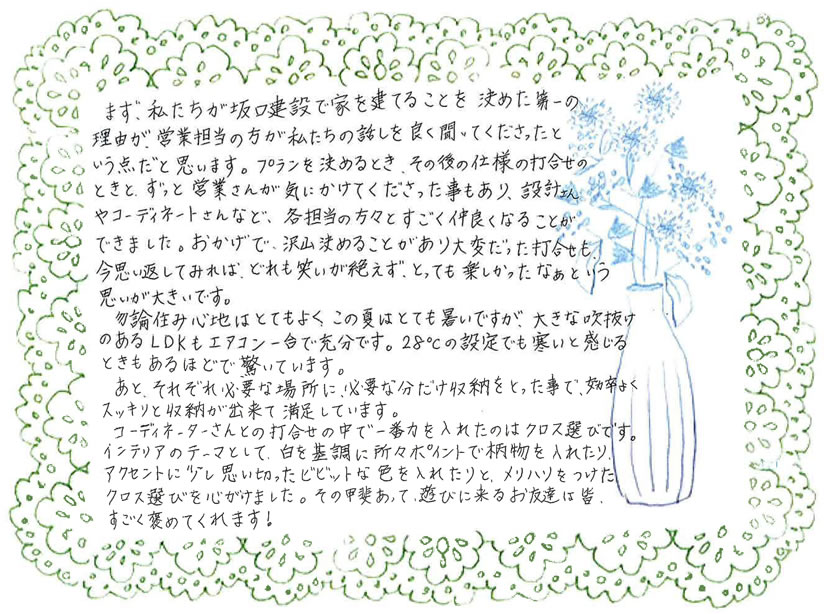 まず、私たちが坂口建設で家を建てることを 決めた第一の
理由が、営業担当の方が私たちの話しを良く聞いてくださったと
いう点だと思います。プランを決めるとき、その後の仕様の打合せの
ときと、ずっと営業さんが気にかけてくださった事もあり、設計さん
やコーディネートさんなど、各担当の方々とすごく仲良くなることが
できました。おかげで、沢山決めることがあり大変だった打合せも、
今思い返してみれば、どれも笑いが絶えず、とっても楽しかったなぁという
思いが大きいです。
勿論住み心地はとてもよく、この夏はとても暑いですが、大きな吹抜け
のあるLDKもエアコン一台で充分です。28℃の設定でも寒いと感じる
ときもあるほどで驚いています。
あと、それぞれ必要な場所に、必要な分だけ収納をとった事で、効率よく
スッキリと収納が出来て満足しています。
コーディネーターさんとの打合せの中で一番力を入れたのはクロス選びです。
インテリアのテーマとして、白を基調に所々ポイントで柄物を入れたり、
アクセントに少し思い切ったビビットな色を入れたりと、メリハリをつけた
クロス選びを心がけました。その甲斐あって、遊びに来るお友達は皆、
すごく褒めてくれます!